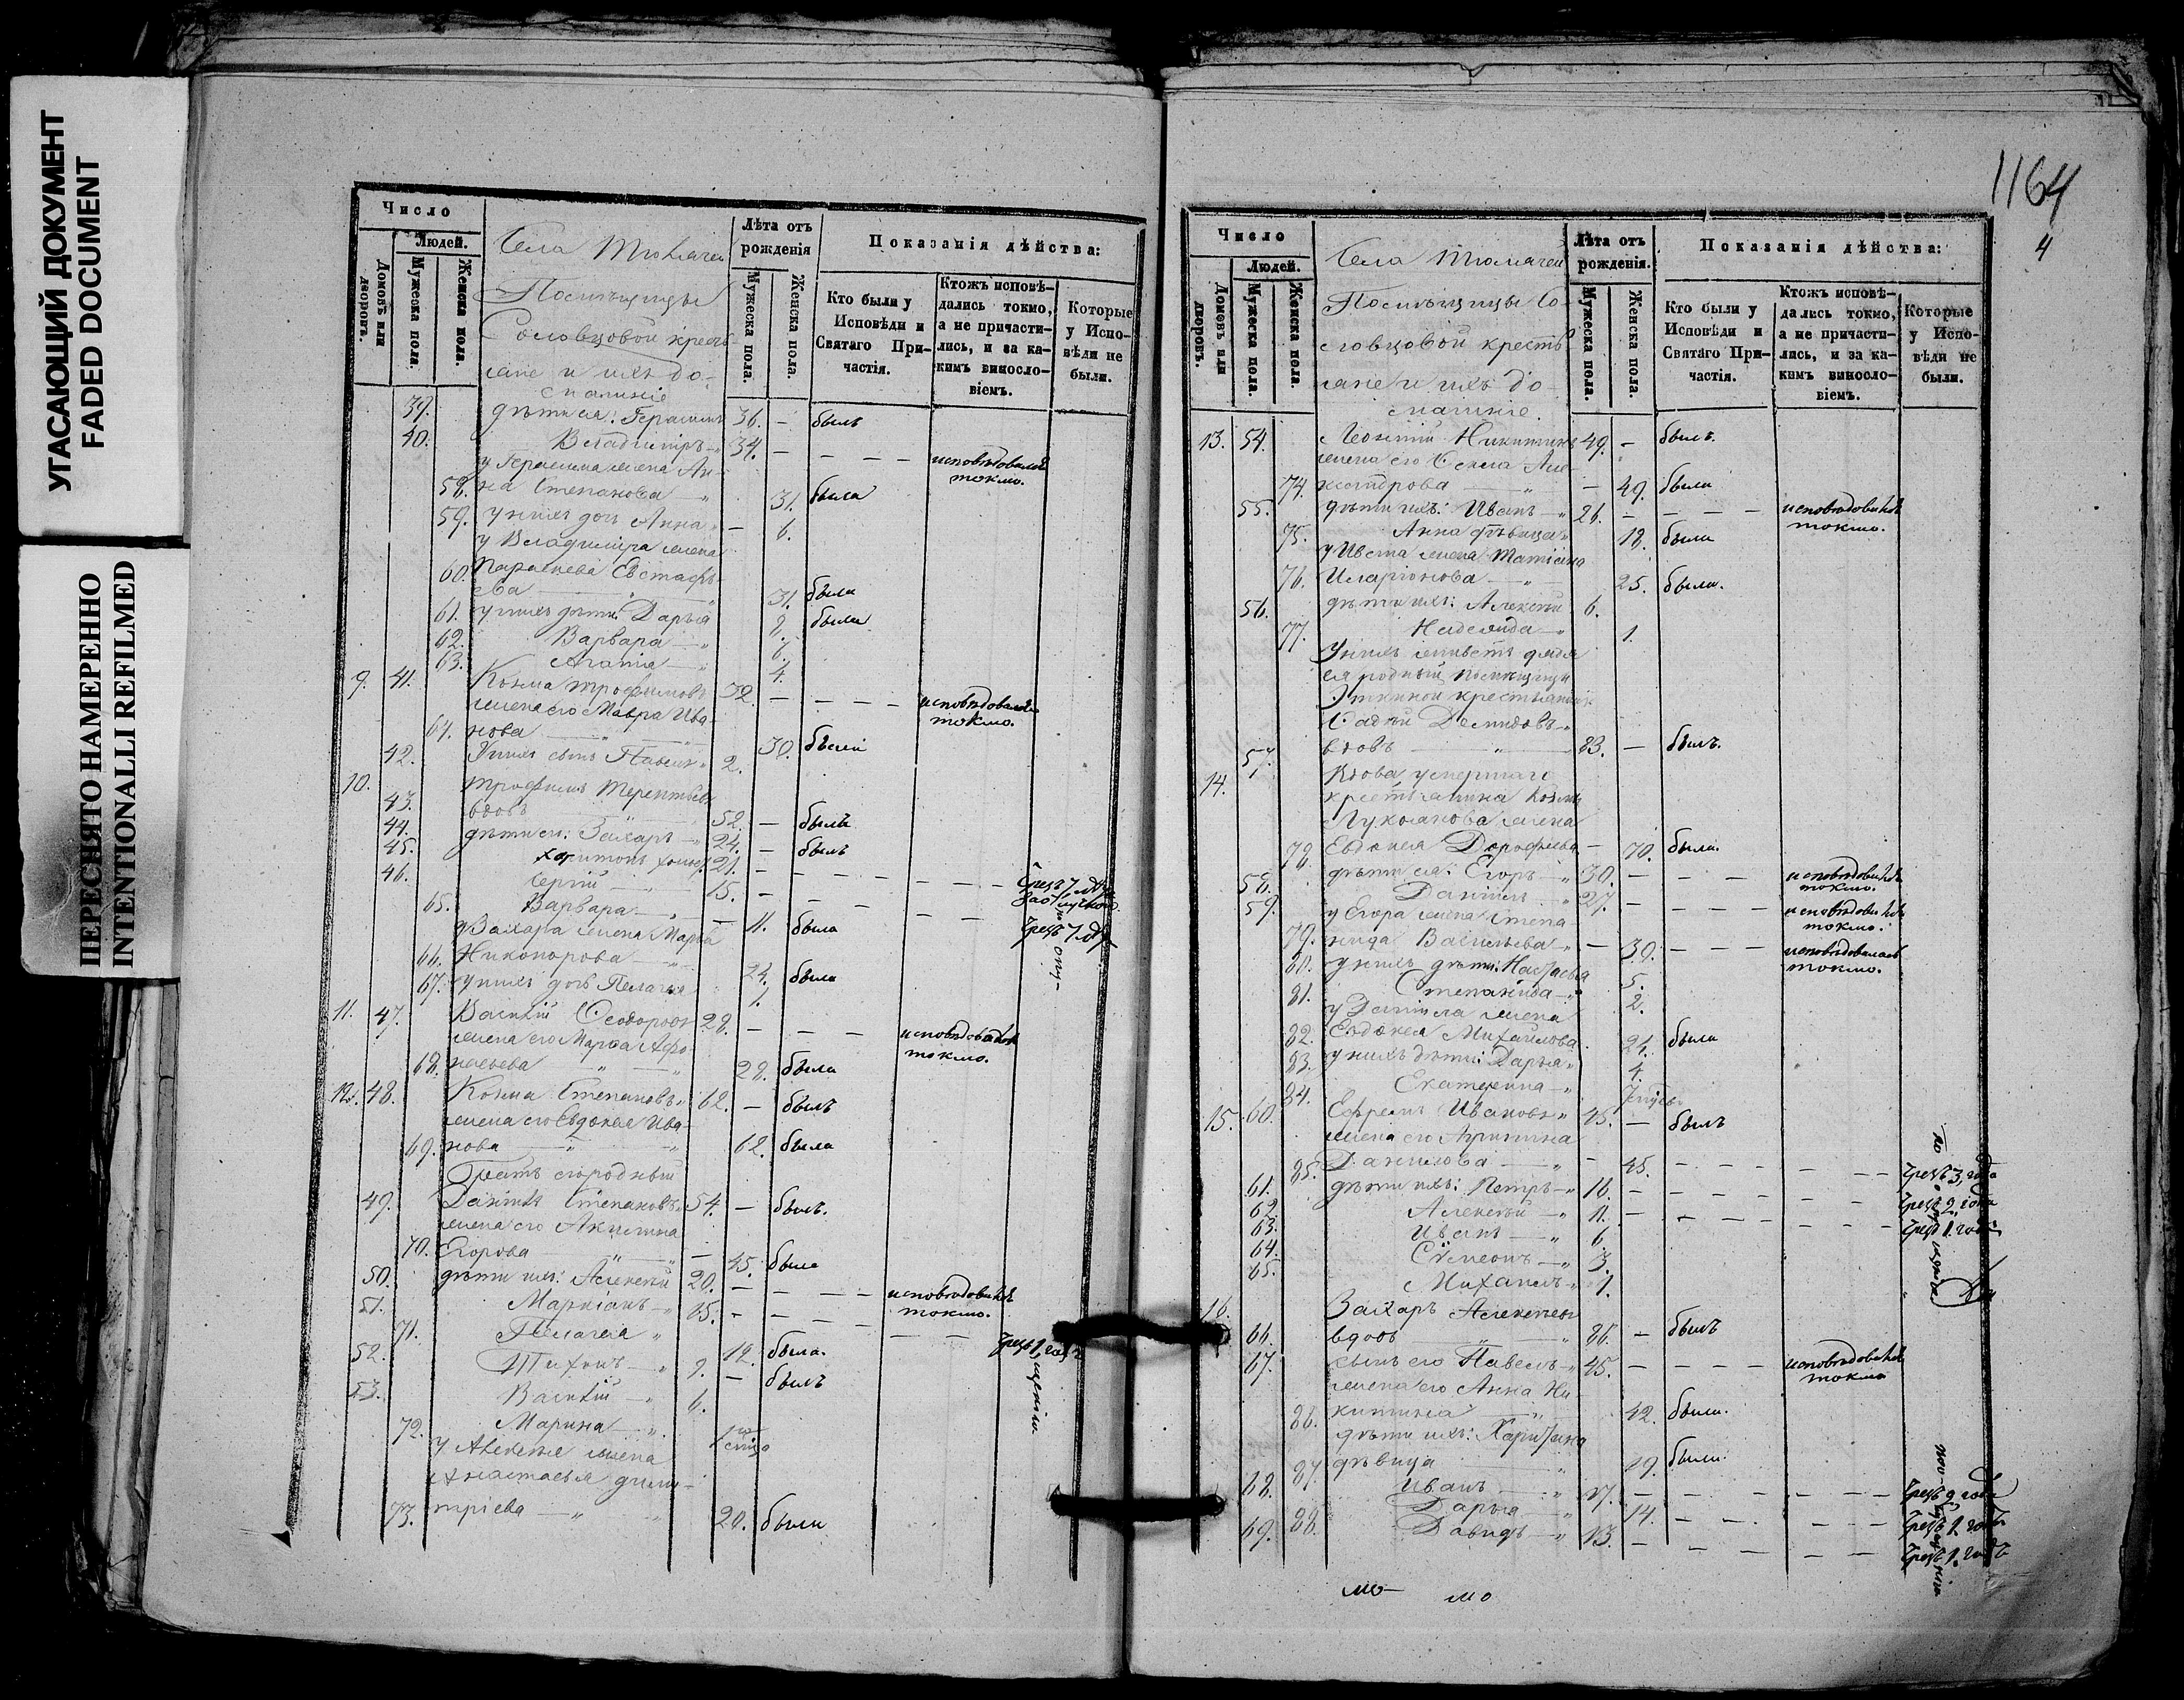 УГАСАЮЩИЙ ДОКУМЕНТ
FADED DOCUMENT
ПЕРЕСНЯТО НАМЕРЕННО
INTENTIONALLI REFILMED
Число
Людей.
Домовъ или дворовъ.
Мужеска пола.
Женска пола.
Помѣщицы
Словцовой кресть-
яне и ихъ до-
машніе
Лѣта отъ рожденія
Мужеска пола.
Женска пола.
Показанія дѣйства:
Кто были у Исповѣди и Святаго Причастія.
Ктожъ исповѣ-
дались токмо,
а не причасти-
лись, и за ка-
кимъ винослo-
віемъ.
Которые
у Испо-
вѣди не
были.
39. дѣти ея: Герасимъ 36. — былъ
40. Владиміръ 34. — исповѣдовался токмо.
у Герасима жена Ан-
58. на Степанова 31. была
59. у нихъ дочь Анна 6.
у Владиміра жена
60. Параскева Евстафь-
ева 31. была
61. у нихъ дѣти: Дарья 8. была
62. Варвара 6.
63. Агапія 4.
9. 41. Козма Трофимовъ 32. — исповѣдовался токмо.
жена его Мавра Ива-
64. нова 30. была
42. У нихъ сынъ Павелъ 2.
10. Трофимъ Терентьевъ
43. вдовъ 52. — былъ
44. дѣти его: Захаръ 24. — былъ
45. Харитонъ холост. 21.
46. Сергій 15.
65. Варвара 11. была
у Захара жена Марѳа
66. Никонорова 24. была
67. у нихъ дочь Пелагея 1.
11. 47. Василій Ѳеодоровъ 28. — исповѣдовался токмо.
жена его Марѳа Аѳо-
68. насьева 28. была
12. 48. Козма Степановъ 62. — былъ
жена его Евдокія Ива-
69. нова 62. была
Братъ его родный
49. Даніилъ Степановъ 54. — былъ.
жена его Акилина
70. Егорова — 45. была
50. дѣти ихъ: Алексѣй 20. — исповѣдовался токмо.
51. Маркіанъ 15.
71. Пелагея 12. была.
52. Тихонъ 9. — былъ
53. Василій 6.
72. Марина
у Алексѣя жена
Анастасья Дими-
73. тріева 20. была
1164
4
Число
Людей.
Домовъ или дворовъ.
Мужеска пола.
Женска пола.
Помѣщицы Со-
ловцовой кресть-
яне и ихъ до-
машніе.
Лѣта отъ рожденія.
Мужеска пола.
Женска пола.
Показанія дѣйства:
Кто были у Исповѣди и Святаго Причастія.
Ктожъ исповѣ-
дались токмо,
а не причасти-
лись, и за ка-
кимъ винослo-
віемъ.
Которые
у Испо-
вѣди не
были.
13. 54. Леонтій Никитинъ 49. — былъ.
жена его Ксенія Але-
74. ксандрова — 49. была
55. дѣти ихъ: Иванъ 26. — исповѣдовался токмо.
75. Анна дѣвица 18. была
у Ивана жена Татіана
76. Иларіонова 25. была.
56. дѣти ихъ: Алексѣй 6.
77. Надежда 1.
У нихъ живетъ дядя
ея родный помѣщицы
крестьянинъ
Фадей Демидовъ
57. вдовъ 83. — былъ.
14. Вдова умершаго
крестьянина Козмы
Лукьянова жена
78. Евдокія Дорофеева — 70. была.
58. дѣти ея: Егоръ 30. — исповѣдовался токмо.
59. Даніилъ 27. — исповѣдовался токмо.
у Егора жена Степа-
79. нида Васильева — 30. исповѣдовалась токмо.
80. у нихъ дѣти: Настасья 5.
81. Степанида 2.
у Даніила жена
82. Евдокія Михайлова 24. была
83. у нихъ дѣти: Дарья 4.
84. Екатерина
15. 60. Ефремъ Ивановъ 45. — былъ
жена его Агрипина
85. Данилова — 45. чрезъ 3 года
61. дѣти ихъ: Петръ 16. чрезъ 2 года
62. Алексѣй 11. чрезъ 1 годъ
63. Иванъ 6.
64. Симеонъ 3.
65. Михаилъ 1.
16. Захаръ Алексѣевъ
66. вдовъ 86. — былъ
67. сынъ его Павелъ 45. — исповѣдовался токмо
жена его Анна Ни-
86. китина 42. была.
дѣти ихъ: Харитина
87. дѣвица 19. была.
68. Иванъ 17. чрезъ 2 года
88. Дарья 14. чрезъ 1 годъ
69. Давидъ 13. чрезъ 1 годъ
мо-
мо